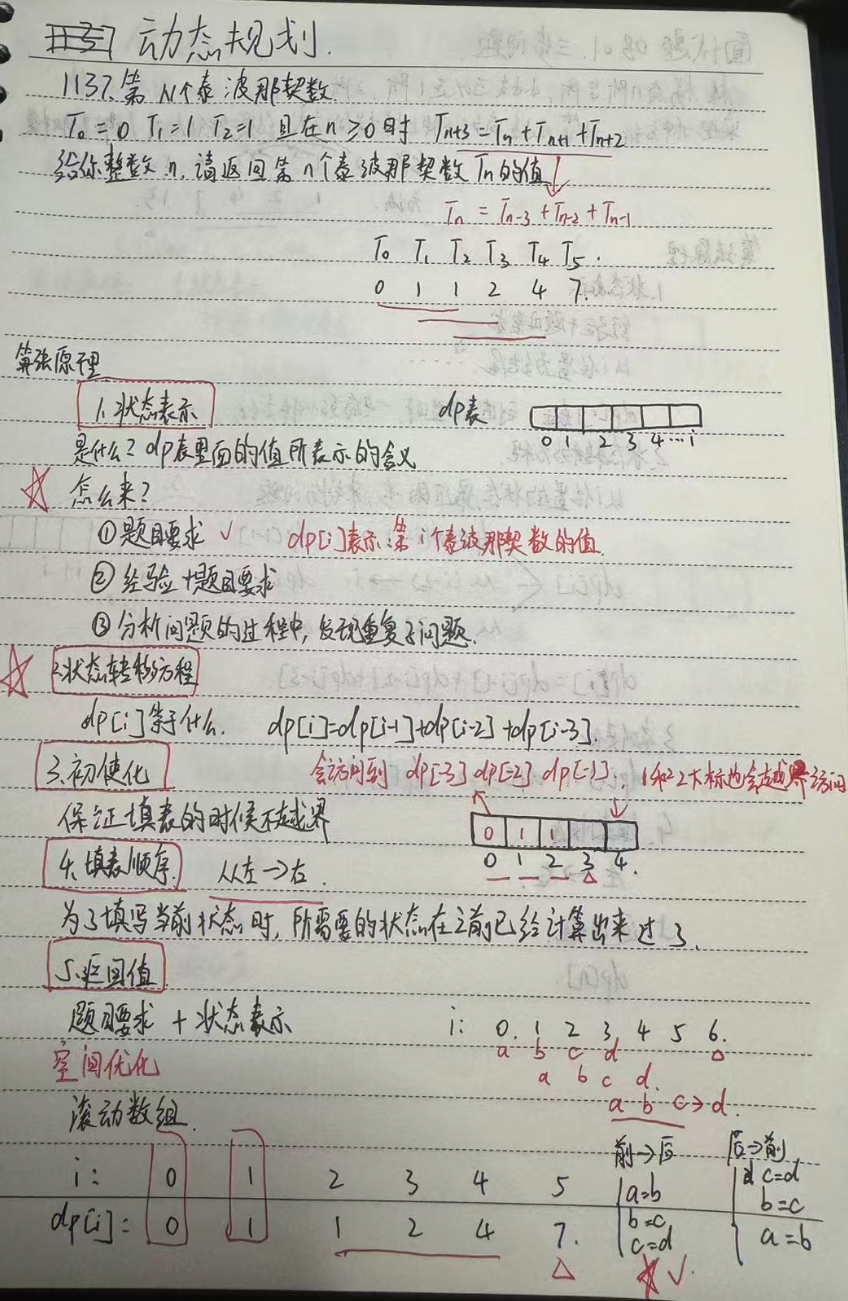 动态规划.
1137.第N个泰波那契数
T₀=0 T₁=1 T₂=1 且在n≥0时 Tn+3=Tn+Tn+1+Tn+2
给你整数n,请返回第n个泰波那契数Tn的值
Tn=Tn-3+Tn-2+Tn-1
T₀ T₁ T₂ T₃ T₄ T₅.
0 1 1 2 4 7.
算法原理
1.状态表示 dp表
0 1 2 3 4…i
是什么?dp表里面的值所表示的含义
怎么来?
①题目要求 ✓ dp[i]表示:第i个泰波那契数的值.
②经验+题目要求
③分析问题的过程中,发现重复子问题.
2.状态转移方程
dp[i]等于什么. dp[i]=dp[i-1]+dp[i-2]+dp[i-3].
3.初使化 会访问到 dp[-3] dp[-2] dp[-1]. 1和2下标也会越界访问
保证填表的时候不越界 0 1
0 1 2 3 4.
4.填表顺序. 从左→右.
为了填写当前状态时,所需要的状态在之前已经计算出来过了.
5.返回值
题目要求+状态表示 i: 0. 1 2 3 4 5 6.
a b c d
空间优化 a b c d.
a b c→d.
滚动数组. 前→后 后→前
i: 0 1 2 3 4 5 a=b c=d
b=c b=c
dp[i]: 0 1 1 2 4 7. c=d a=b
✓.